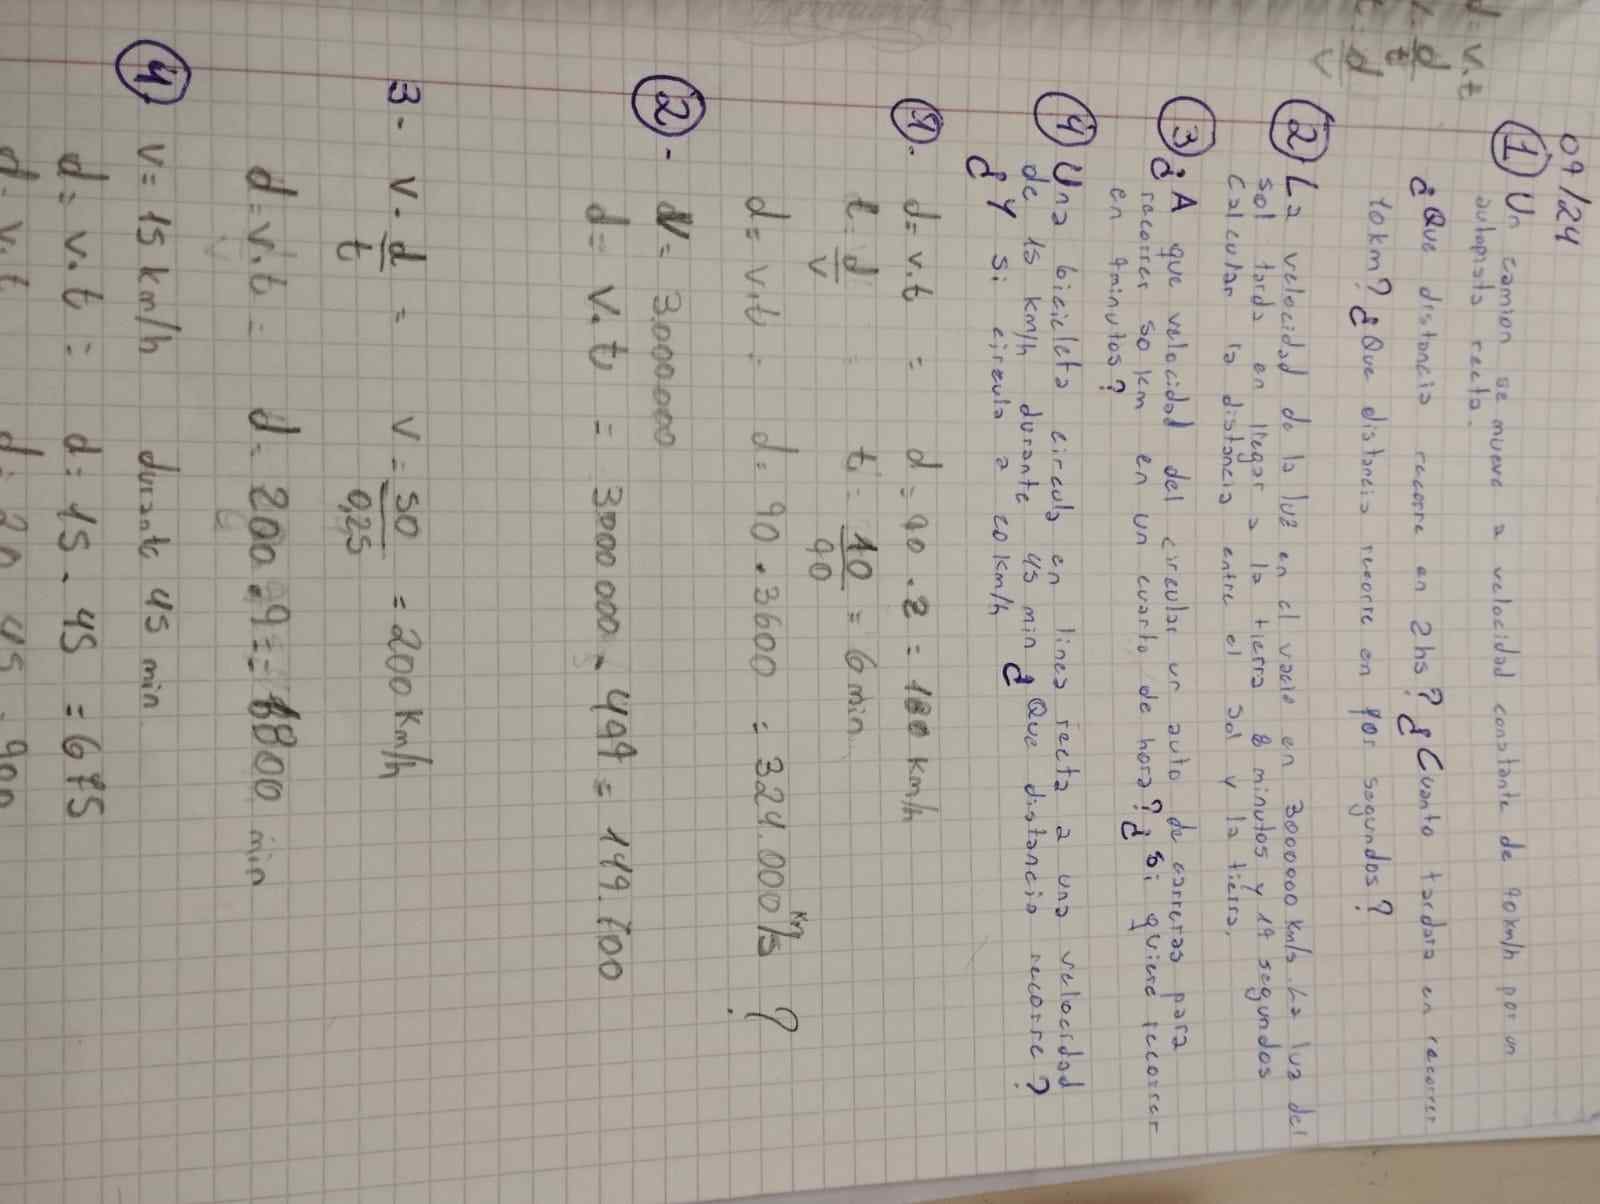 d = v.t
v. d/t
t. d/v
09/24
① Un camion se mueve a velocidad constante de 90km/h por un
autopista recta.
¿Que distancia recorre en 2hs? ¿Cuanto tardara en recorrer
10km? ¿Que distancia recorre en por segundos?
② La velocidad de la luz en el vacio en 3000000 Km/s. La luz del
sol tarda en llegar a la tierra 8 minutos y 19 segundos
Calcular la distancia entre el sol y la tierra.
③ ¿A que velocidad del circular un auto de carreras para
recorrer 50 km en un cuarto de hora? ¿Si quiere recorrer
en 9minutos?
④ Una bicicleta circula en linea recta a una velocidad
de 15 km/h durante 45 min ¿Que distancia recorre?
¿Y si circula a 20km/h
①. d= v.t = d= 90 . 2 = 180 km/h
t= d/v = t= 10/90 = 6 min
d= v.t = d= 90 . 3600 = 324.000 Km/s ?
②- V= 3000000
d= v.t = 3000 000 . 499 = 149.700
3- v. d/t = v= 50/0,25 = 200 Km/h
d=v.t = d= 200 . 9 = 1800 min
④ v= 15 km/h durante 45 min
d= v.t = d= 15 . 45 = 675
d= v.t d= 20 . 45 . 900